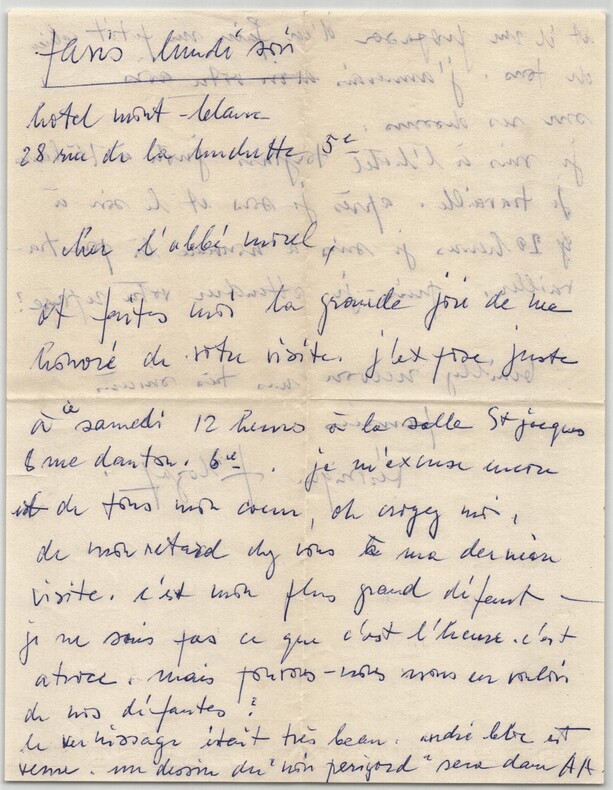 Paris lundi soir
hotel mont-blanc
28 rue de la huchette 5e
cher l'abbé morel,
et faites moi la grande joie de me
honoré de votre visite. j'expose juste
à ce samedi 12 heures à la salle St jacques
8 rue danton. 6e. je m'excuse encore
et de tous mon coeur, oh croyez moi,
de mon retard chez vous à ma dernière
visite. c'est mon plus grand défaut —
je ne sais pas ce que c'est l'heure. c'est
atroce. mais pouvons-nous nous en vouloir
de nos défautes ?
le vernissage était très beau. andré était
venue. un dessin du "noir perigord" sera dans AA